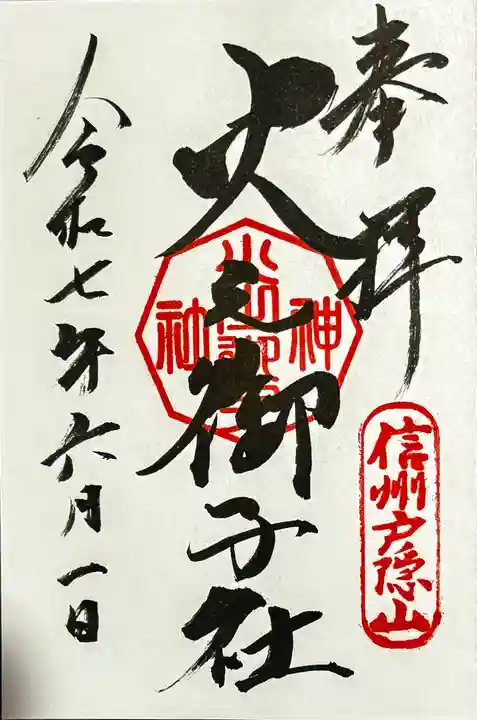 奉拝
信州戸隠山
火之御子社
神
社
令和七年六月一日